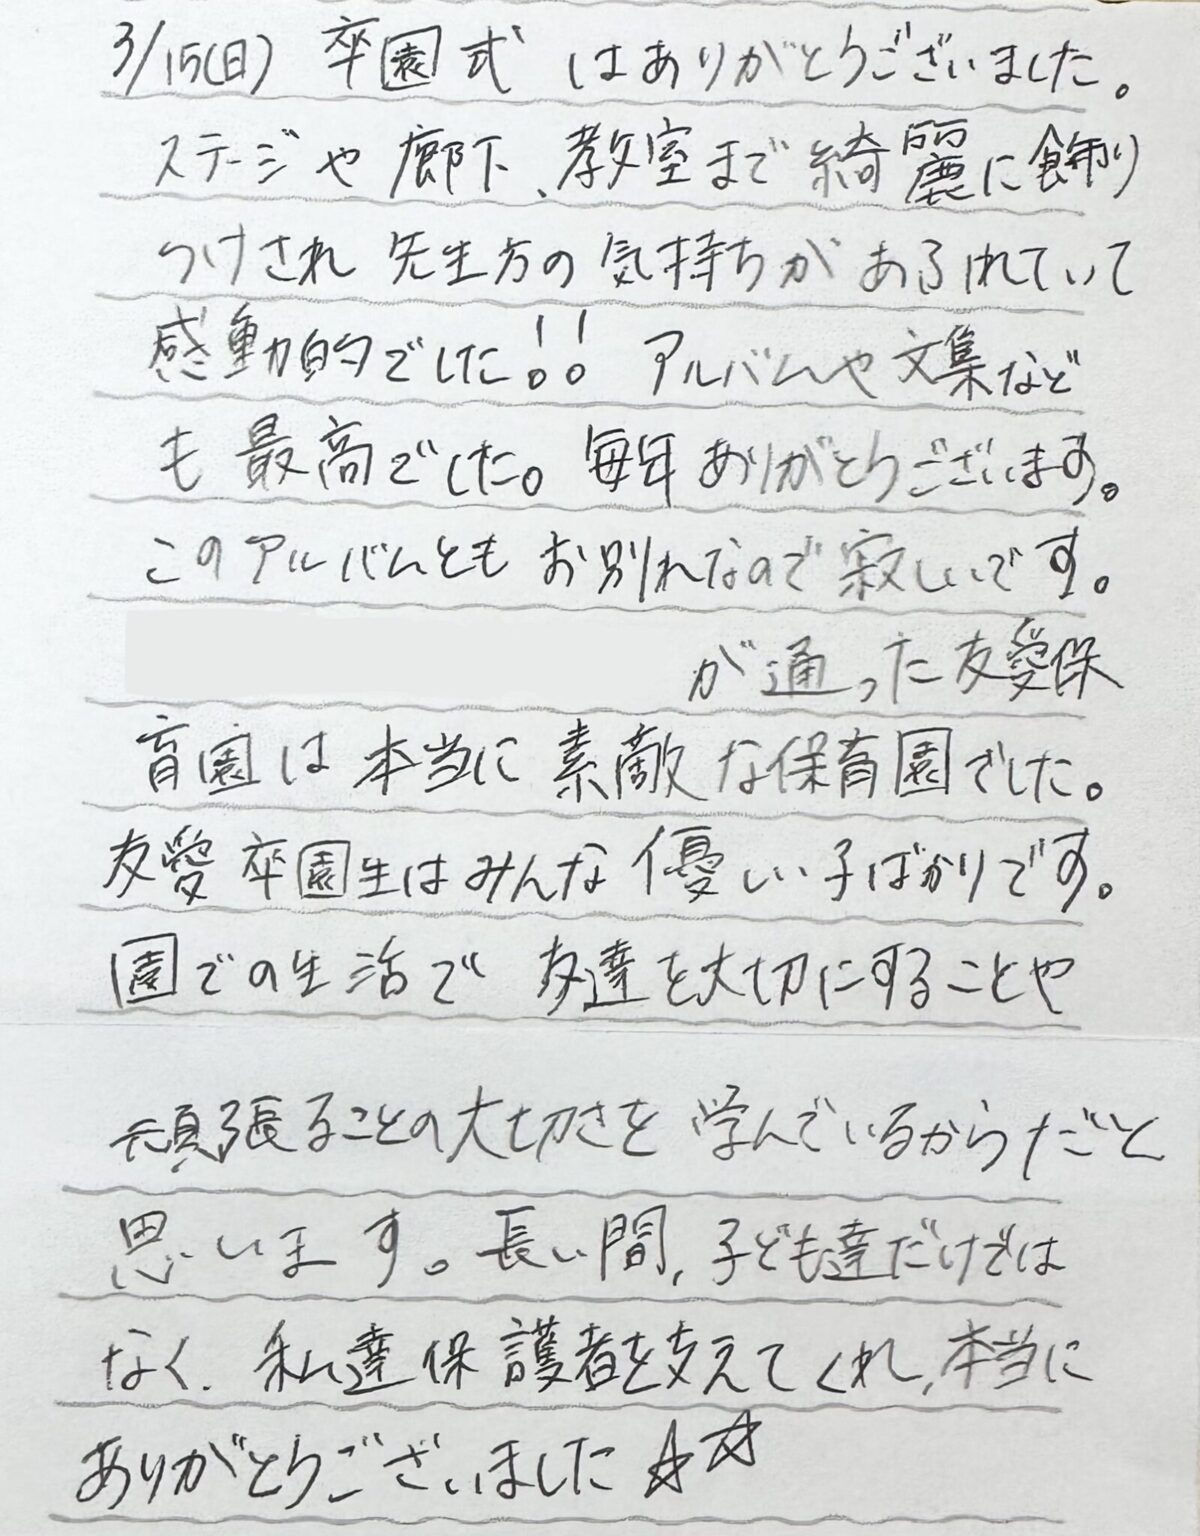 3/15(日) 卒園式 はありがとうございました。
ステージや廊下、教室まで綺麗に飾り
つけされ 先生方の気持ちがあふれていて
感動的でした!! アルバムや文集など
も最高でした。毎年ありがとうございます。
このアルバムともお別れなので寂しいです。
が通った友愛保
育園は本当に素敵な保育園でした。
友愛卒園生はみんな優しい子ばかりです。
園での生活で 友達を大切にすることや
頑張ることの大切さを学んでいるからだと
思います。長い間、子ども達だけでは
なく、私達保護者を支えてくれ、本当に
ありがとうございました☆☆